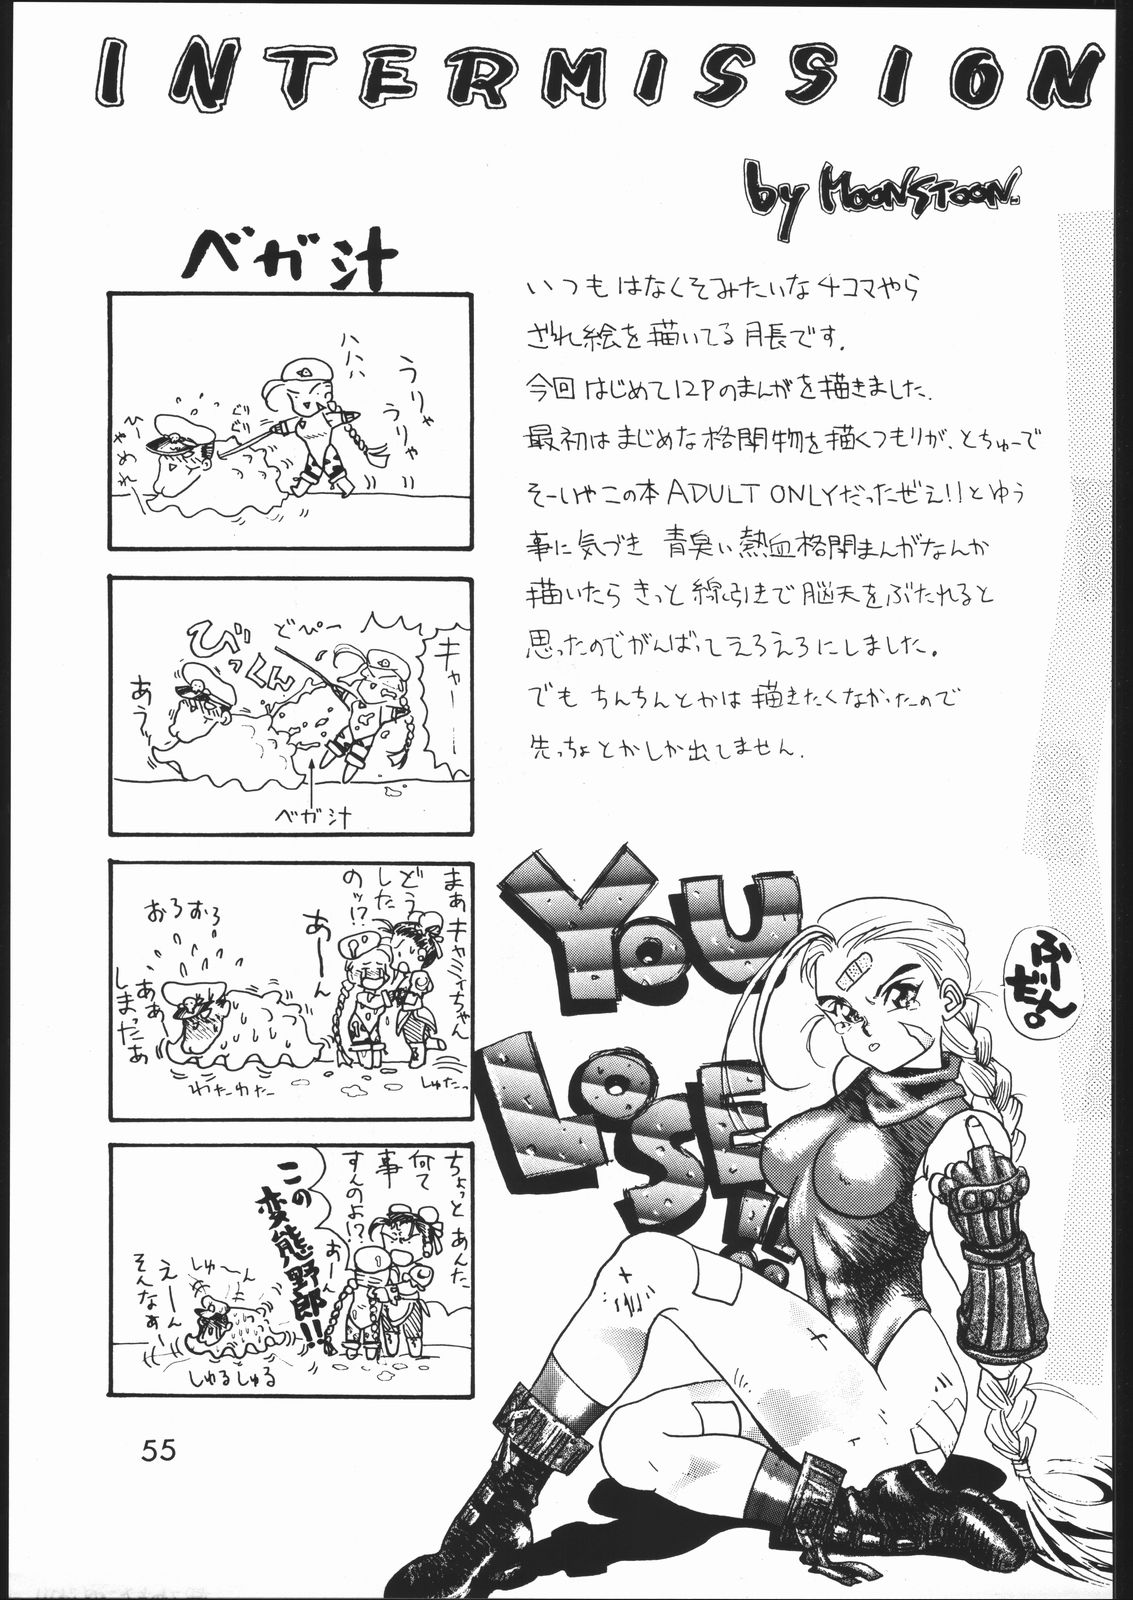 INTERMISSION
by MOONSTOON.
ベガ汁
ハハハ
うりゃ
うりゃ
ひー
やめれ
どぴー
びっくん
キャー
あう
ベガ汁
まぁキャミィちゃん
どう
した
のッ!?
あーん
おろおろ
ああ
しまったぁ
わたわた
しゅたっ
ちょっとあんた
何て
事
すんのよ!?
あーん
この
変態野郎!!
しゅ〜ん
え〜ん
そんなぁ〜
しゅるしゅる
いつもはなくそみたいな4コマやら
ざれ絵を描いてる月長です.
今回はじめて12Pのまんがを描きました.
最初はまじめな格闘物を描くつもりが、とちゅーで
そーいやこの本ADULT ONLYだったぜえ!!とゆう
事に気づき 青臭い熱血格闘まんがなんか
描いたらきっと線引きで脳天をぶたれると
思ったのでがんばってえろえろにしました。
でもちんちんとかは描きたくなかったので
先っちょとかしか出てません.
YOU
LOSE!!
ふーんだ。
55